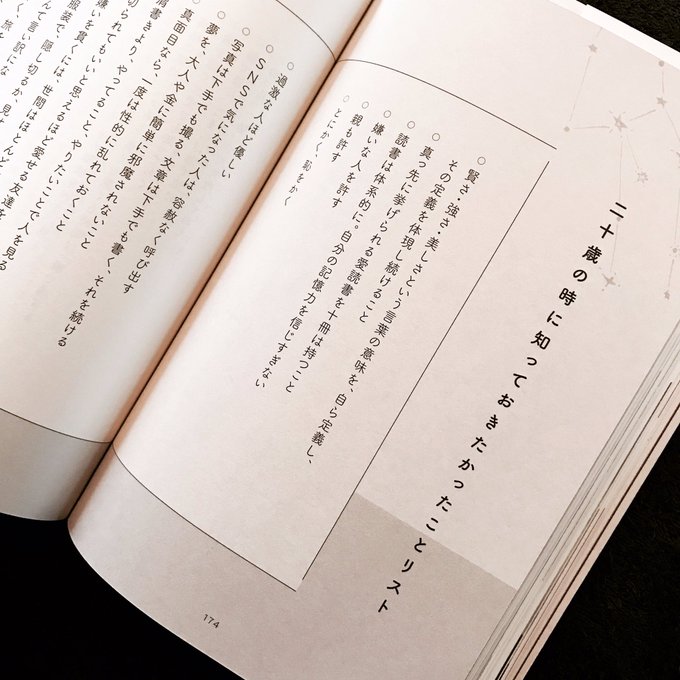 二十歳の時に知っておきたかったことリスト
○ 賢さ・強さ・美しさという言葉の意味を、自ら定義し、
その定義を体現し続けること
○ 真っ先に挙げられる愛読書を十冊は持つこと
○ 読書は体系的に。自分の記憶力を信じすぎない
○ 嫌いな人を許す
○ 親も許す
○ とにかく、恥をかく
174
○ 過激な人ほど優しい
○ SNSで気になった人は、容赦なく呼び出す
○ 写真は下手でも撮る、文章は下手でも書く、それを続ける
○ 夢を、大人や金に簡単に邪魔されないこと
○ 真面目なら、一度は性的に乱れておくこと
肩書きより、やってること、やりたいことで人を見る
切られてもいいと思えるほど愛せる友達を
嫌いを貫くには、世間はほとんど
服装で、隠し切るか、見
んて言い訳にな